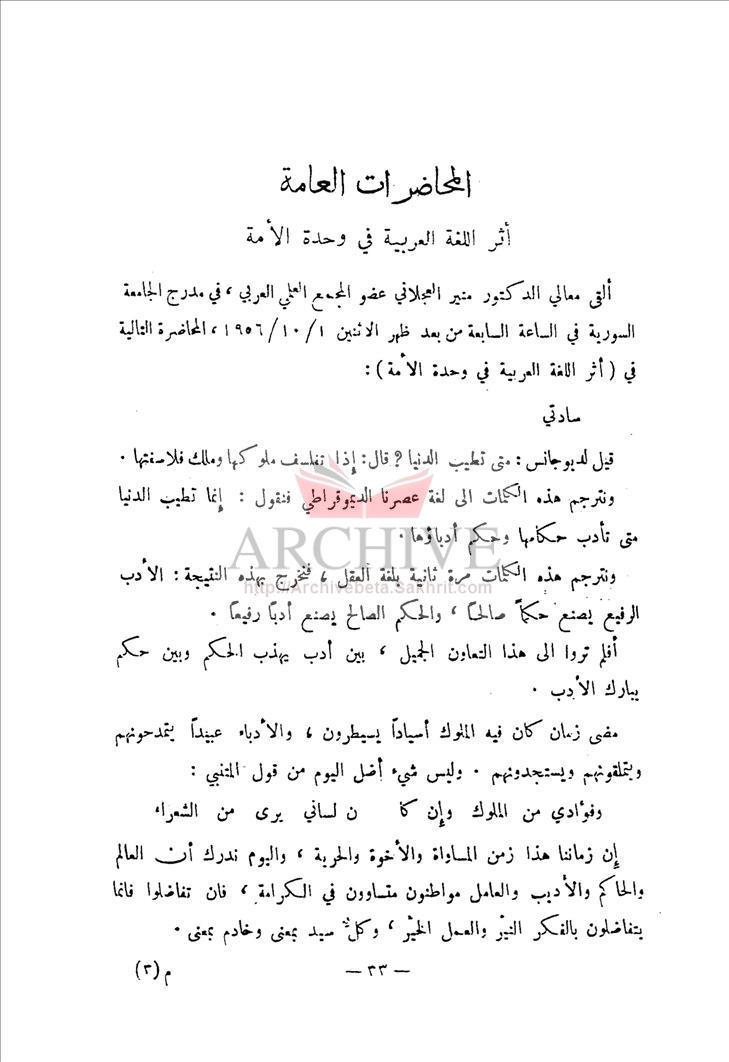 المحاضرات العامة
أثر اللغة العربية في وحدة الأمة
ألقى معالي الدكتور منير العجلاني عضو المجمع العلمي العربي ، في مدرج الجامعة
السورية في الساعة السابعة من بعد ظهر الاثنين ١/ ١٠/ ١٩٥٦ ، المحاضرة التالية
في ( أثر اللغة العربية في وحدة الأمة ) :
سادتي
قيل لديوجانس : متى تطيب الدنيا ؟ قال : إذا تفلسف ملوكها وملك فلاسفتها .
ونترجم هذه الكلمات الى لغة عصرنا الديموقراطي فنقول : إنما تطيب الدنيا
متى تأدب حكامها وحكم أدباؤها .
ARCHIVE
ونترجم هذه الكلمات مرة ثانية بلغة العقل ، فنخرج بهذه النتيجة : الأدب
http://Archivebeta.Sakhrit.com
الرفيع يصنع حكماً صالحاً ، والحكم الصالح يصنع أدباً رفيعاً .
أفلم تروا الى هذا التعاون الجميل ، بين أدب يهذب الحكم وبين حكم
يبارك الأدب .
مضى زمان كان فيه الملوك أسياداً يسيطرون ، والأدباء عبيداً يتمدحونهم
ويتملقونهم ويستجدونهم . وليس شيء أضل اليوم من قول المتنبي :
وفؤادي من الملوك وإن كا ن لساني يرى من الشعراء
إن زماننا هذا زمن المساواة والأخوة والحرية ، واليوم ندرك أن العالم
والحاكم والأديب والعامل مواطنون متساوون في الكرامة ، فان تفاضلوا فانما
يتفاضلون بالفكر النيّر والعمل الخيّر ، وكلٌّ سيد بمعنى وخادم بمعنى .
— ٣٣ —
م (٣)